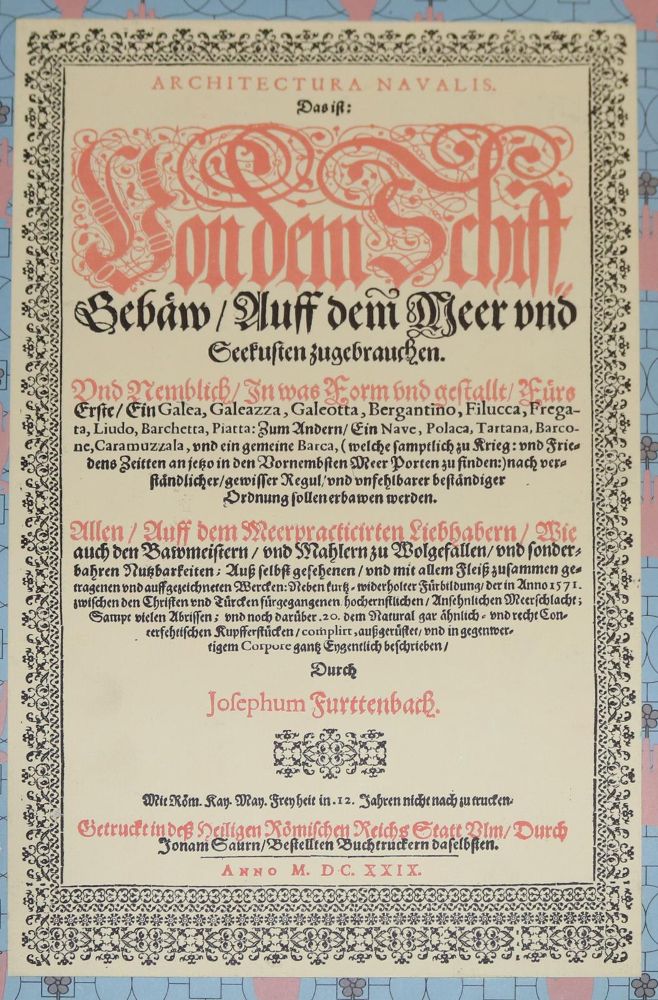 ARCHITECTURA NAVALIS.
Das ist:
Von dem Schiff
Gebäw / Auff dem̃ Meer vnd
Seekusten zugebrauchen.
Vnd Nemblich / In was Form vnd gestallt / Fürs
Erste / Ein Galea, Galeazza, Galeotta, Bergantino, Filucca, Frega-
ta, Liudo, Barchetta, Piatta: Zum Andern / Ein Nave, Polaca, Tartana, Barco-
ne, Caramuzzala, vnd ein gemeine Barca, (welche samptlich zu Krieg: vnd Frie-
dens Zeitten an jetzo in den Vornembsten Meer Porten zu finden:) nach ver-
ständlicher / gewisser Regul / vnd vnfehlbarer beständiger
Ordnung sollen erbawen werden.
Allen / Auff dem Meer practicirten Liebhabern / Wie
auch den Bawmeistern / vnd Mahlern zu Wolgefallen / vnd sonder-
bahren Nutzbarkeiten: Auß selbst gesehenen / vnd mit allem Fleiß zusammen ge-
tragenen vnd auffgezeichneten Wercken: Neben kurtz-widerholter Fürbildung / der in Anno 1571.
zwischen den Christen vnd Türcken fürgegangenen hochernstlichen / Ansehnlichen Meerschlacht;
Sampt vielen Abrissen; vnd noch darüber .20. dem Natural gar ähnlich- vnd recht Con-
terfehtischen Kupfferstücken / complirt, außgerüstet / vnd in gegenwer-
tigem Corpore gantz Eygentlich beschrieben /
Durch
Josephum Furttenbach.
Mit Röm. Kay. May. Freyheit in .12. Jahren nicht nach zu trucken.
Getruckt in deß Heiligen Römischen Reichs Statt Vlm / Durch
Jonam Saurn / Bestellten Buchtruckern daselbsten.
ANNO M. DC. XXIX.